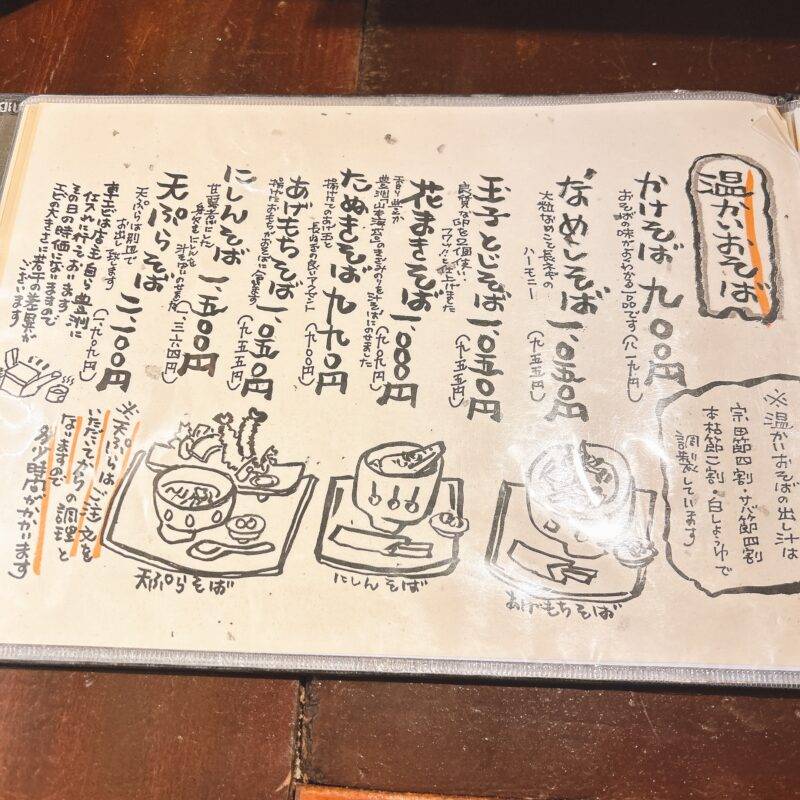 温かいおそば
かけそば 九〇〇円
おそばの味がよくわかる一品です(八一九円)
なめこそば 一、〇五〇円
大粒なめこと長ネギの
ハーモニー
(九五五円)
玉子とじそば 一、〇五〇円
良質な卵を2個使い、
フワフワと仕上げました
(九五五円)
花まきそば 一、〇〇〇円
香り豊かな
豊洲「山本海苔」のきざみのりを汁そばにのせました
(九〇九円)
たぬきそば 九九〇円
揚げたてのあげ玉と
長ねぎの良いアクセント
(九〇〇円)
あげもちそば 一、〇五〇円
揚げたておもちがおそばに合います
(九五五円)
にしんそば 一、五〇〇円
甘露煮にした
身欠きにしんを
汁そばにのせました
(一、三六四円)
天ぷらそば 二、一〇〇円
天ぷらは別皿で
お出し致します
(一、九〇九円)
車エビは店主自ら豊洲に
仕入れに行っております
その日の時価になりますので
エビの大きさに若干の差異が
ございます
※温かいおそばの出し汁は
宗田節四割・サバ節四割
本枯節二割・白しょうゆで
調製しています
※天ぷらはご注文を
いただいてからの調理と
なりますので
多少時間がかかります
天ぷらそば
にしんそば
あげもちそば